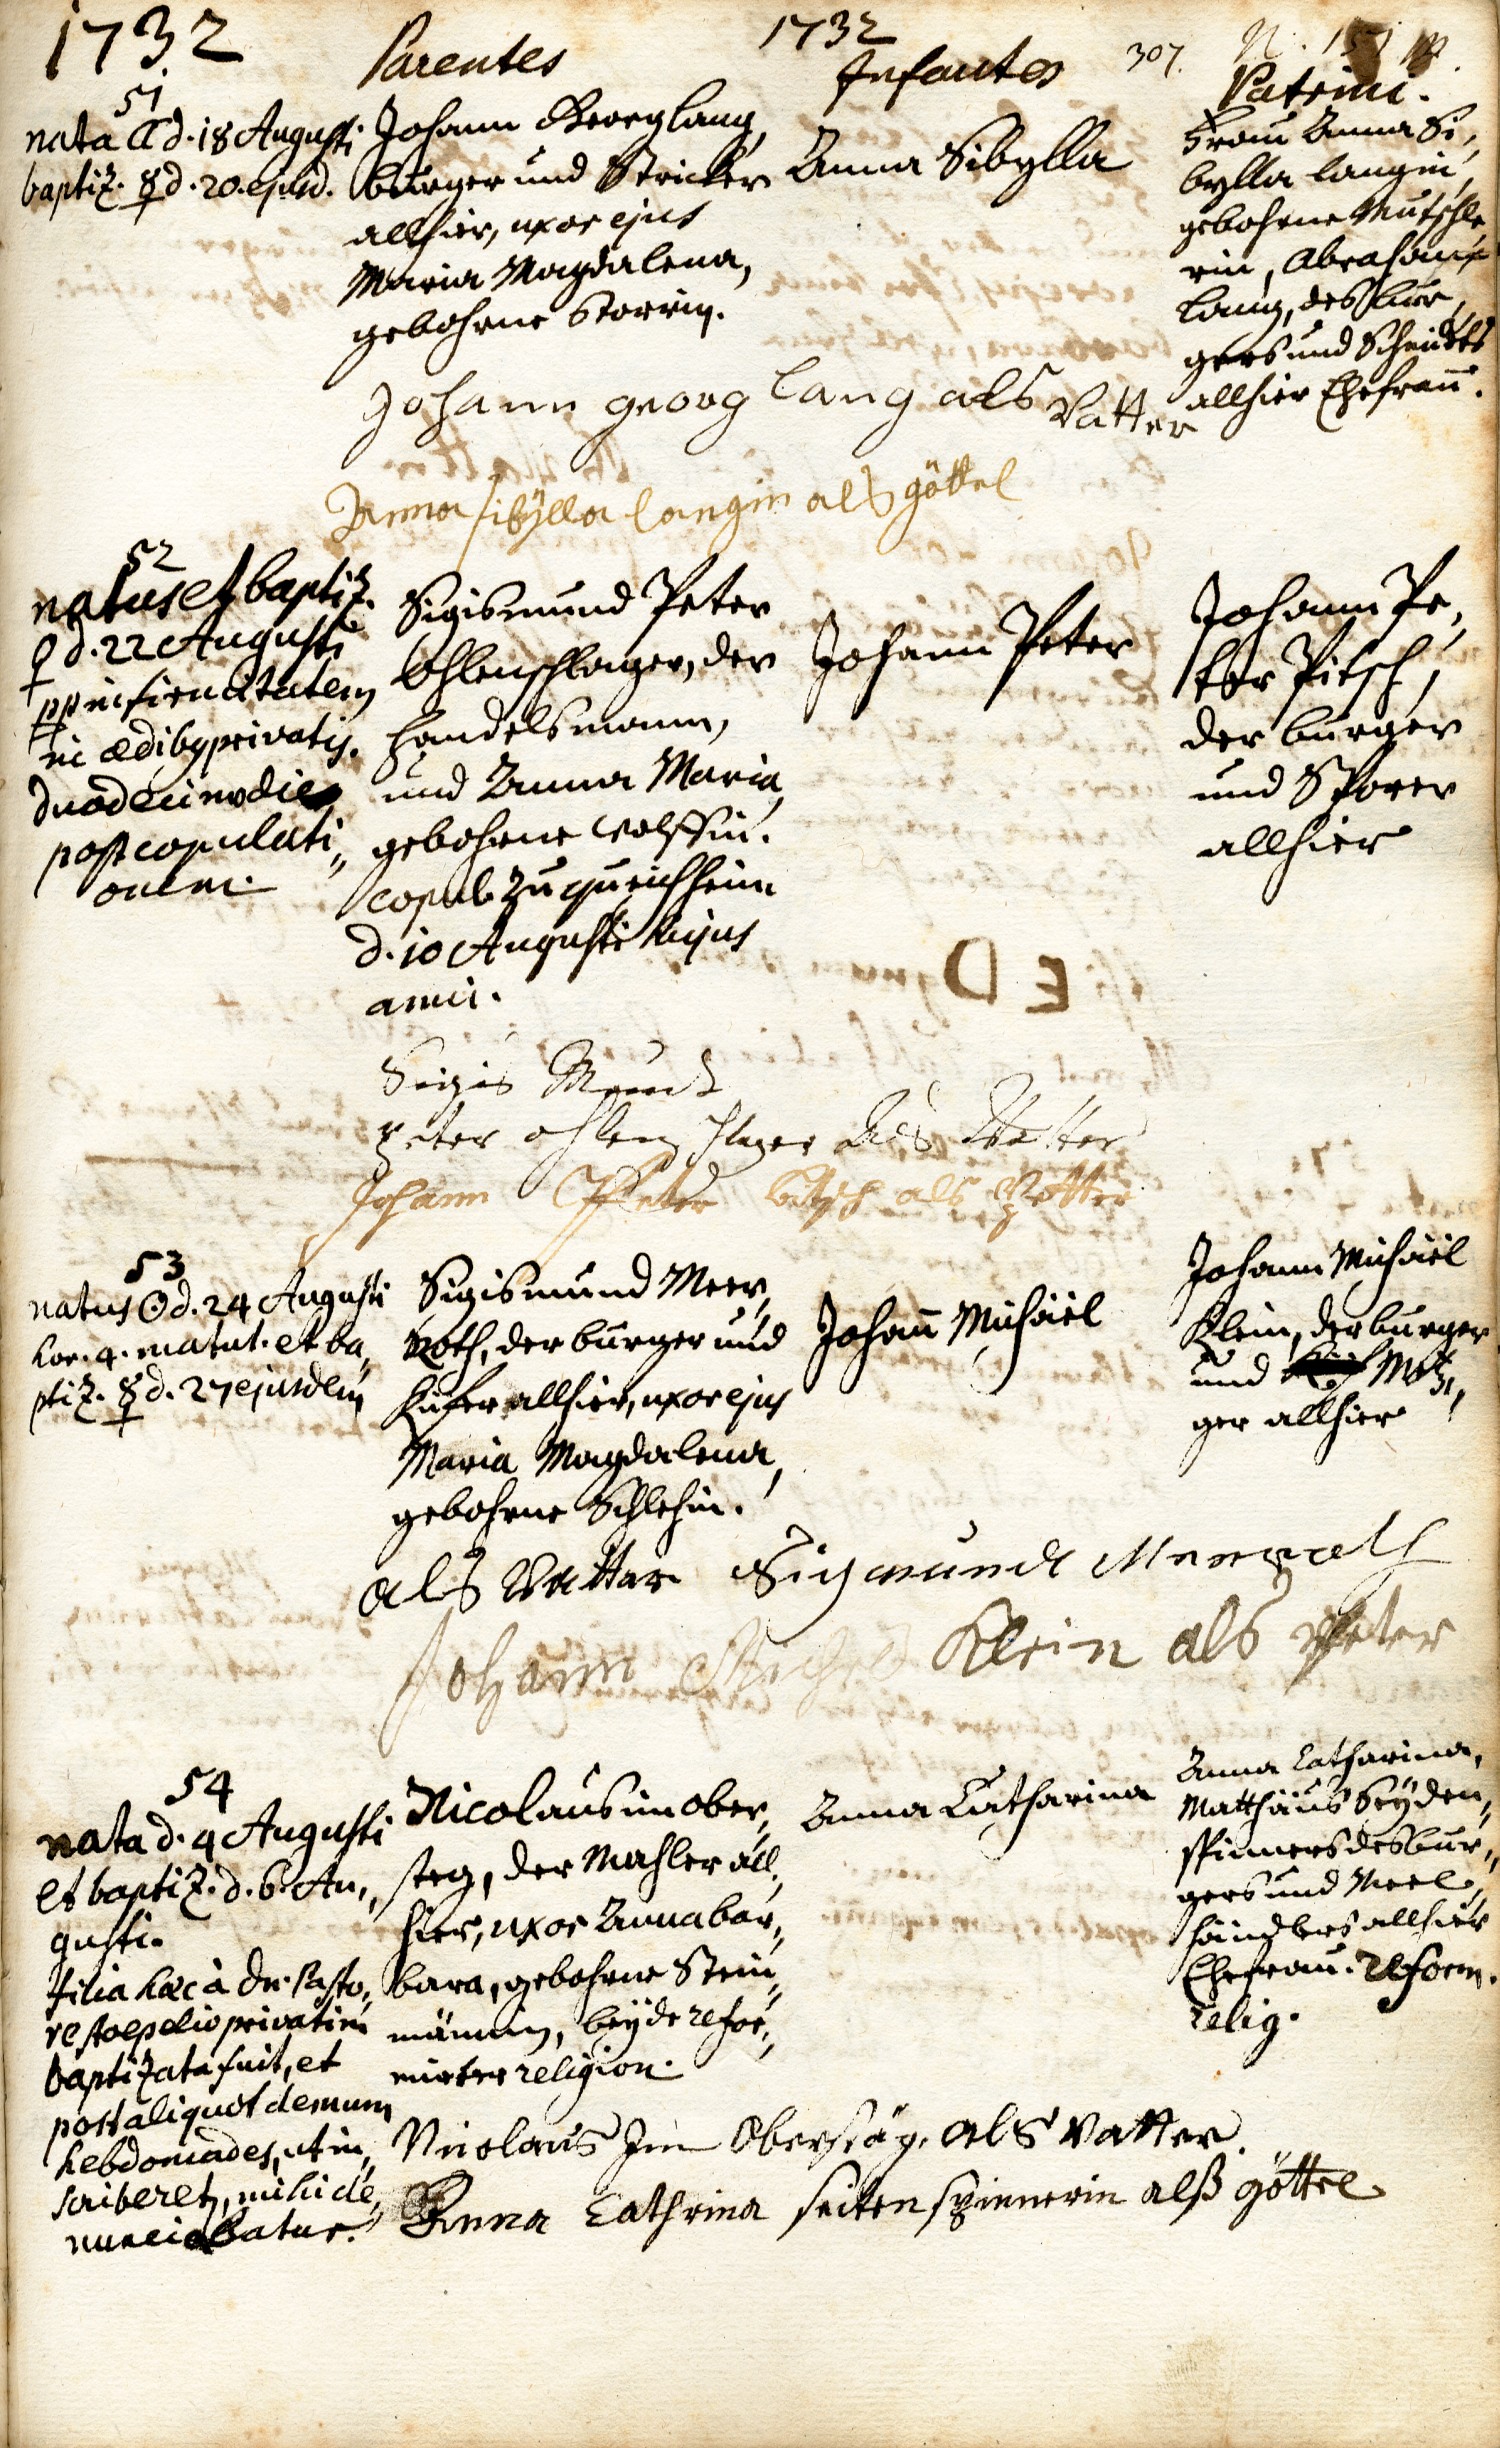 1732
1732
307.
Parentes
Infantes
Patrini.
51
nata d. 18 Augusti
baptiz. ☿ d. 20. ejusd.
Johann Georg Lang,
burger und Stricker
allhier, uxor ejus
Maria Magdalena,
gebohrne Storrin.
Anna Sibylla
Frau Anna Si,
bylla Langin,
gebohrne Mutschle,
rin, Abraham
Lang, des bur,
gers und Schmidts
allhier Ehefrau.
Johann georg Lang als Vatter
Anna sibÿlla langin als göttel
52
natus et baptiz.
♀ d. 22 Augusti
pp infirmitatem
in ædibg privatis.
duodecimo die
post copulati,,
onem.
Sigismund Peter
Ohlenschlager, der
handelsmann,
und Anna Maria
gebohrne Wolffin.
copul. zu Queichheim
d. 10 Augusti hujus
anni.
Johann Peter
Johann Pe,
ter Pitsch,
der burger
und Sporer
allhier
Sigis Mundt
Peter ohlenschlager Als Vatter
Johann Peter bitsch als Pfetter
53
natus ☉ d. 24 Augusti
hor. 4. matut. et ba,
ptiz. ☿ d. 27 ejusdem
Sigismund Meer,
roth, der burger und
Kiefer allhier, uxor ejus
Maria Magdalena,
gebohrne Schlehin.
Johann Michäel
Johann Michäel
Klein, der burger
und Metz,
ger allhier
als Vattar Sigmundt Meerroth
Johann Michel Klein als Peter
54
nata d. 4 Augusti
et baptiz. d. 6. Au,,
gusti.
filia hæc à Dn. Pasto,
re privatim
baptizata fuit, et
post aliquot demum
hebdomades, ut in,
scriberetur, mihi de,
nunciabatur.
Nicolaus im ober,
steg, der Mahler all,
hier, uxor Anna bar,
bara, gebohrne Stein,
männin, beÿde refor,
mirter religion.
Anna Catharina
Anna Catharina,
Matthäus Seÿden,
spinners des bur,,
gers und Meel,
händlers allhier
Ehefrau. Reform.
relig.
Nicolaus Im Oberstäg. als Vatter.
Anna Cathrina seitenspinnerin alß göttel